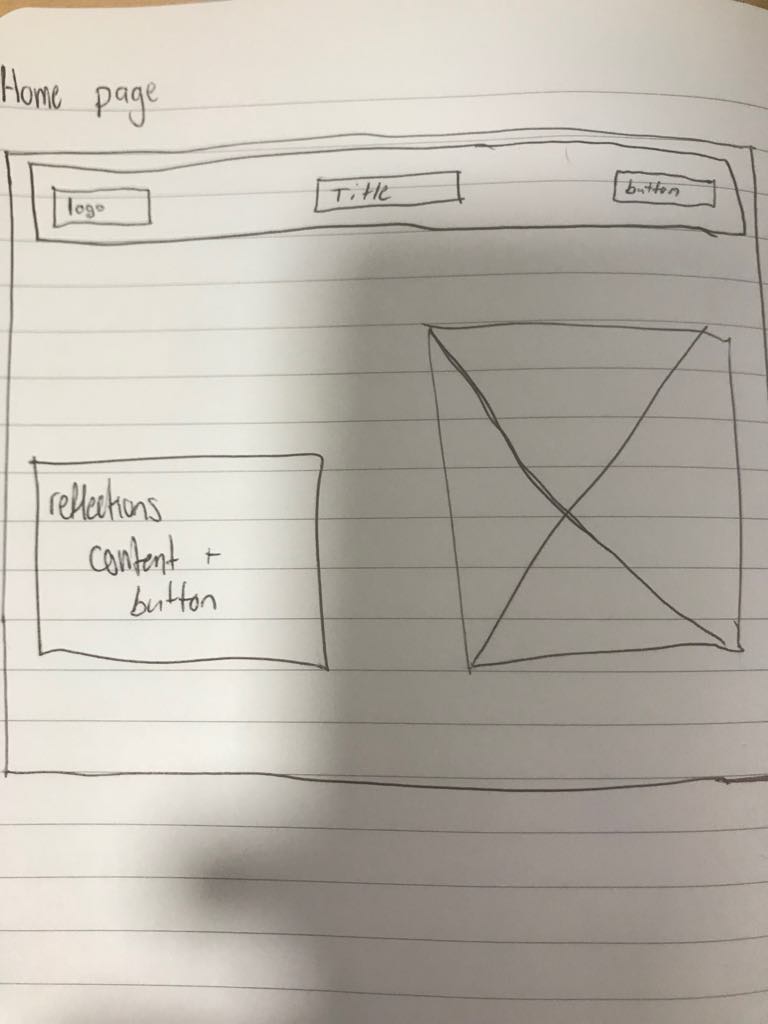 Home page
logo
Title
button
reflections
content +
button